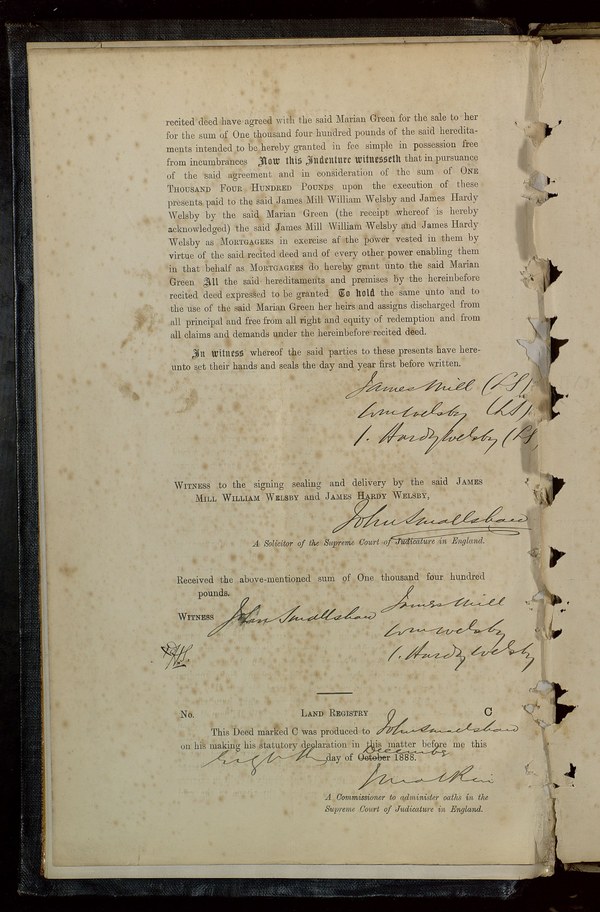 recited deed have agreed with the said Marian Green for the sale to her
for the sum of One thousand four hundred pounds of the said heredita-
ments intended to be hereby granted in fee simple in possession free
from incumbrances Now this Indenture witnesseth that in pursuance
of the said agreement and in consideration of the sum of ONE
THOUSAND FOUR HUNDRED POUNDS upon the execution of these
presents paid to the said James Mill William Welsby and James Hardy
Welsby by the said Marian Green (the receipt whereof is hereby
acknowledged) the said James Mill William Welsby and James Hardy
Welsby as MORTGAGEES in exercise of the power vested in them by
virtue of the said recited deed and of every other power enabling them
in that behalf as MORTGAGEES do hereby grant unto the said Marian
Green All the said hereditaments and premises by the hereinbefore
recited deed expressed to be granted To hold the same unto and to
the use of the said Marian Green her heirs and assigns discharged from
all principal and free from all right and equity of redemption and from
all claims and demands under the hereinbefore recited deed.
In witness whereof the said parties to these presents have here-
unto set their hands and seals the day and year first before written.
James Mill (LS)
Wm Welsby (LS)
J. Hardy Welsby (LS)
WITNESS to the signing sealing and delivery by the said JAMES
MILL WILLIAM WELSBY and JAMES HARDY WELSBY,
John Smallshaw
A Solicitor of the Supreme Court of Judicature in England.
Received the above-mentioned sum of One thousand four hundred
pounds.
James Mill
WITNESS John Smallshaw
Wm Welsby
J. Hardy Welsby
No. LAND REGISTRY C
This Deed marked C was produced to John Smallshaw
on his making his statutory declaration in this matter before me this
Eighth day of October December 1888.
A Commissioner to administer oaths in the
Supreme Court of Judicature in England.